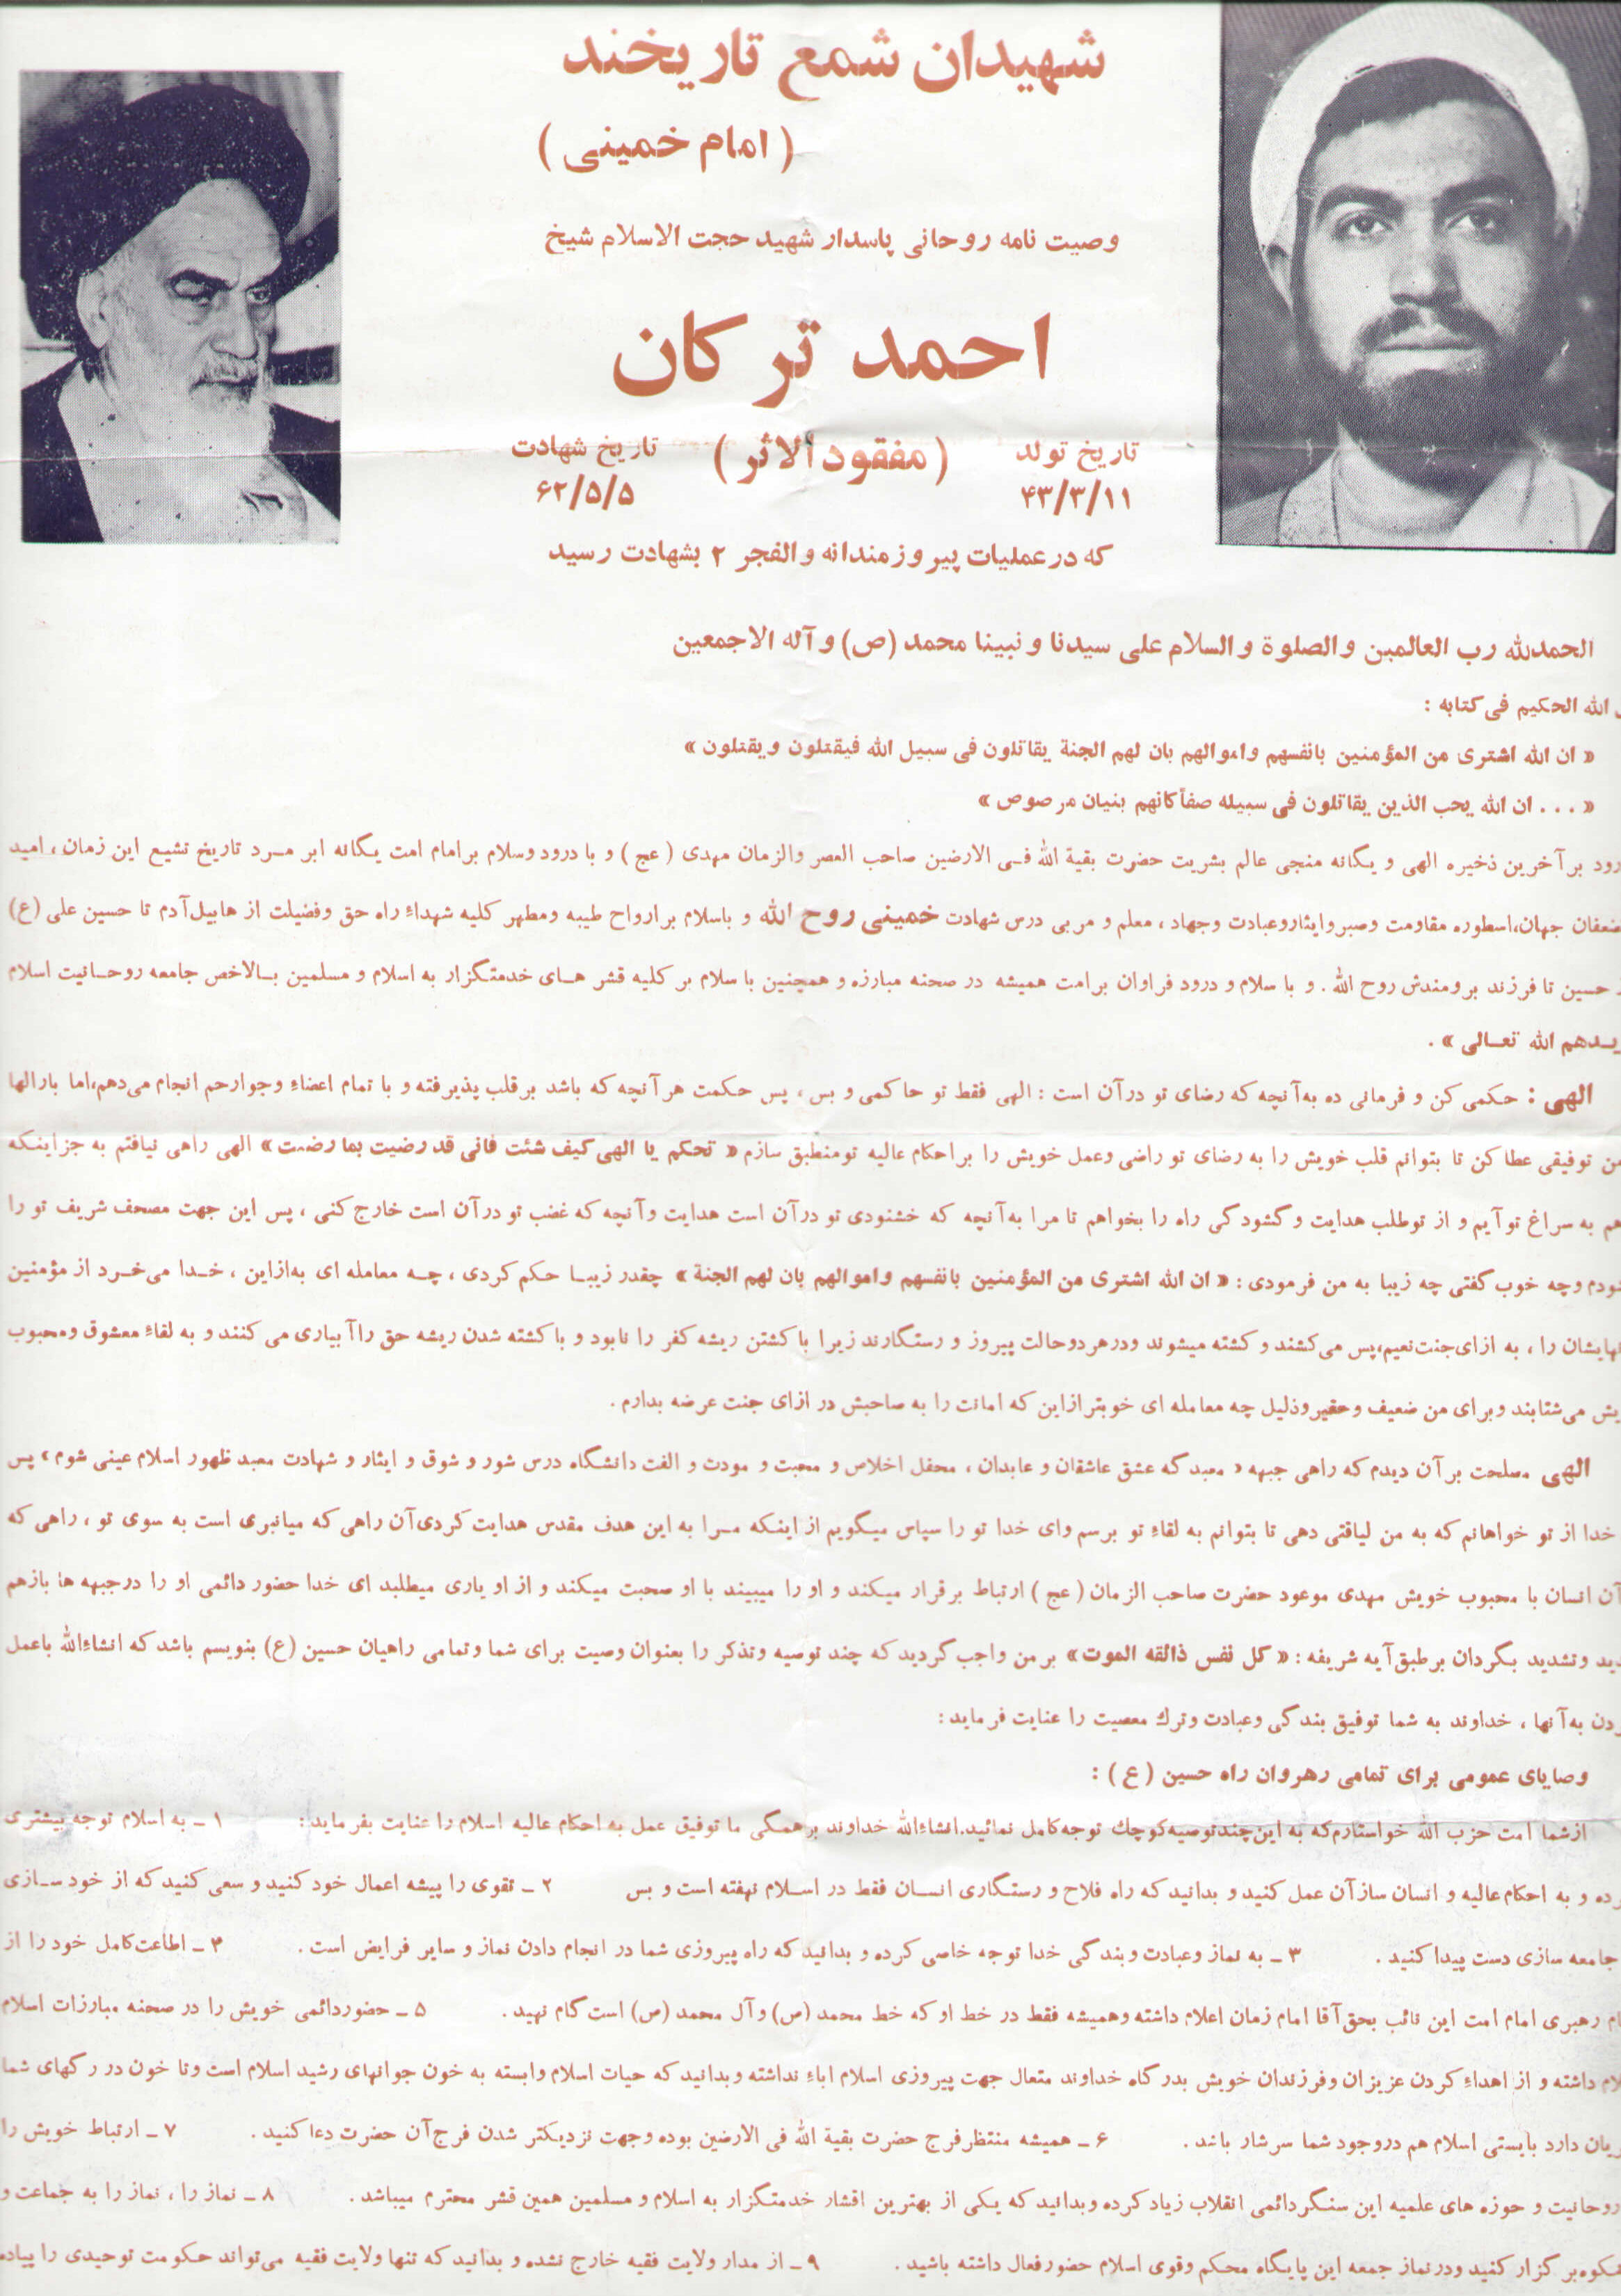 شهیدان شمع تاریخند
(امام خمینی)
وصیت نامه روحانی پاسدار شهید حجت الاسلام شیخ
احمد ترکان
تاریخ تولد (مفقودالاثر) تاریخ شهادت
۴۳/۳/۱۱ ۶۲/۵/۵
که در عملیات پیروزمندانه والفجر ۲ بشهادت رسید
الحمدلله رب العالمین والصلوة والسلام علی سیدنا و نبینا محمد (ص) و آله الاجمعین
الله الحکیم فی کتابه :
« ان الله اشتری من المؤمنین بانفسهم واموالهم بان لهم الجنة یقاتلون فی سبیل الله فیقتلون ویقتلون »
« ... ان الله یحب الذین یقاتلون فی سبیله صفاً کانهم بنیان مرصوص »
رود بر آخرین ذخیره الهی و یگانه منجی عالم بشریت حضرت بقیة الله فی الارضین صاحب العصر والزمان مهدی ( عج ) و با درود وسلام بر امام امت یگانه ابر مرد تاریخ تشیع این زمان ، امید
ضعفان جهان،اسطوره مقاومت وصبر وایثار وعبادت وجهاد ، معلم و مربی درس شهادت خمینی روح الله و باسلام بر ارواح طیبه ومطهر کلیه شهداء راه حق وفضیلت از هابیل آدم تا حسین علی (ع)
حسین تا فرزند برومندش روح الله . و با سلام و درود فراوان بر امت همیشه در صحنه مبارزه و همچنین با سلام بر کلیه قشر های خدمتگزار به اسلام و مسلمین بالاخص جامعه روحانیت اسلام
یدهم الله تعالی » .
الهی : حکمی کن و فرمانی ده به آنچه که رضای تو در آن است : الهی فقط تو حاکمی و بس ، پس حکمت هر آنچه که باشد بر قلب پذیرفته و با تمام اعضاء وجوارحم انجام می‌دهم،اما بارالها
من توفیقی عطا کن تا بتوانم قلب خویش را به رضای تو راضی وعمل خویش را بر احکام عالیه تو منطبق سازم « تحکم یا الهی کیف شئت فانی قد رضیت بما رضیت » الهی راهی نیافتم به جز اینکه
هم به سراغ تو آیم و از تو طلب هدایت و گشودگی راه را بخواهم تا مرا به آنچه که خشنودی تو در آن است هدایت وآنچه که غضب تو در آن است خارج کنی ، پس این جهت مصحف شریف تو را
ودم وچه خوب گفتی چه زیبا به من فرمودی : « ان الله اشتری من المؤمنین بانفسهم واموالهم بان لهم الجنة » چقدر زیبا حکم کردی ، چه معامله ای به از این ، خدا می‌خرد از مؤمنین
هایشان را ، به ازای جنت نعیم،پس می‌کشند و کشته میشوند ودر هر دو حالت پیروز و رستگارند زیرا با کشتن ریشه کفر را نابود و با کشته شدن ریشه حق را آبیاری می کنند و به لقاء معشوق ومحبوب
یش می‌شتابند وبرای من ضعیف وحقیر وذلیل چه معامله ای خوبتر از این که امانت را به صاحبش در ازای جنت عرضه بدارم .
الهی مصلحت بر آن دیدم که راهی جبهه « معبد که عشق عاشقان و عابدان ، محفل اخلاص و محبت و مودت و الفت دانشگاه درس شور و شوق و ایثار و شهادت معبد ظهور اسلام عینی شوم » پس
خدا از تو خواهانم که به من لیاقتی دهی تا بتوانم به لقاء تو برسم وای خدا تو را سپاس میگویم از اینکه مرا به این هدف مقدس هدایت کردی آن راهی که میانبری است به سوی تو ، راهی که
آن انسان با محبوب خویش مهدی موعود حضرت صاحب الزمان ( عج ) ارتباط برقرار میکند و او را میبیند با او صحبت میکند و از او یاری میطلبد ای خدا حضور دائمی او را در جبهه ها باز هم
دید وتشدید بگردان بر طبق آیه شریفه : « کل نفس ذائقه الموت » بر من واجب گردید که چند توصیه وتذکر را بعنوان وصیت برای شما وتمامی راهیان حسین (ع) بنویسم باشد که انشاءالله باعمل
ردن به آنها ، خداوند به شما توفیق بندگی وعبادت وترك معصیت را عنایت فرماید :
وصایای عمومی برای تمامی رهروان راه حسین ( ع ) :
از شما امت حزب الله خواستارم که به این چند توصیه کوچك توجه کامل نمائید.انشاءالله خداوند بر همگی ما توفیق عمل به احکام عالیه اسلام را عنایت بفرماید : ۱ ـ به اسلام توجه بیشتری
رده و به احکام عالیه و انسان ساز آن عمل کنید و بدانید که راه فلاح و رستگاری انسان فقط در اسلام نهفته است و بس ۲ ـ تقوی را پیشه اعمال خود کنید و سعی کنید که از خود سازی
جامعه سازی دست پیدا کنید . ۳ ـ به نماز وعبادت وبندگی خدا توجه خاصی کرده و بدانید که راه پیروزی شما در انجام دادن نماز و سایر فرایض است . ۴ ـ اطاعت کامل خود را از
ام رهبری امام امت این نائب بحق آقا امام زمان اعلام داشته وهمیشه فقط در خط او که خط محمد (ص) وآل محمد (ص) است گام نهید . ۵ ـ حضور دائمی خویش را در صحنه مبارزات اسلام
لام داشته و از اهداء کردن عزیزان وفرزندان خویش بدرگاه خداوند متعال جهت پیروزی اسلام اباء نداشته وبدانید که حیات اسلام وابسته به خون جوانهای رشید اسلام است وتا خون در رگهای شما
ریان دارد بایستی اسلام هم در وجود شما سرشار باشد . ۶ ـ همیشه منتظر فرج حضرت بقیة الله فی الارضین بوده وجهت نزدیکتر شدن فرج آن حضرت دعا کنید . ۷ ـ ارتباط خویش را
روحانیت و حوزه های علمیه این سنگر دائمی انقلاب زیاد کرده وبدانید که یکی از بهترین اقشار خدمتگزار به اسلام و مسلمین همین قشر محترم میباشد . ۸ ـ نماز را ، نماز را به جماعت و
کوه برگزار کنید ودر نماز جمعه این پایگاه محکم وقوی اسلام حضور فعال داشته باشید . ۹ ـ از مدار ولایت فقیه خارج نشده و بدانید که تنها ولایت فقیه می‌تواند حکومت توحیدی را پیاده